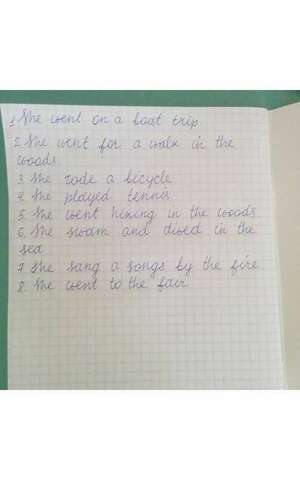 1 She went on a boat trip.
2. She went for a walk in the
woods.
3. She rode a bicycle
4. She played tennis
5. She went hiking in the woods
6. She swam and dived in the
sea
7. She sang a songs by the fire
8. She went to the fair